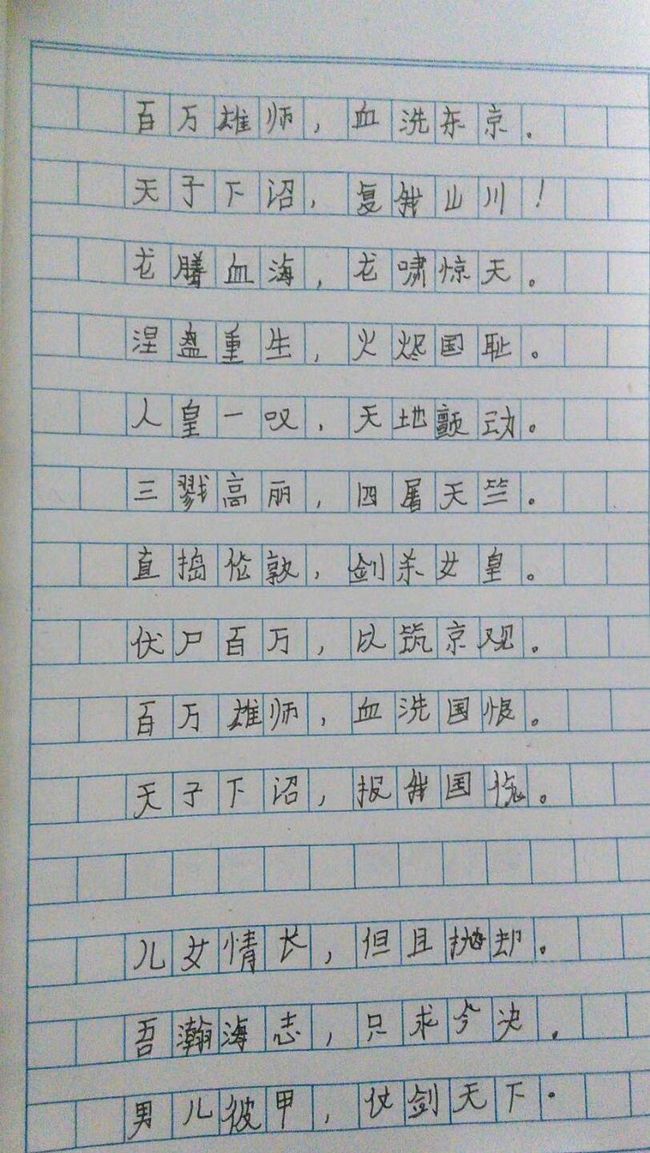 百万雄师，血洗东京。
天子下诏，复我山川！
龙腾血海，龙啸惊天。
涅盘重生，火烬国耻。
人皇一叹，天地颤动。
三戮高丽，四屠天竺。
直捣伦敦，剑杀女皇。
伏尸百万，以筑京观。
百万雄师，血洗国恨。
天子下诏，报我国恍。
儿女情长，但且抛却。
吾瀚海志，只求今决。
男儿彼甲，仗剑天下.